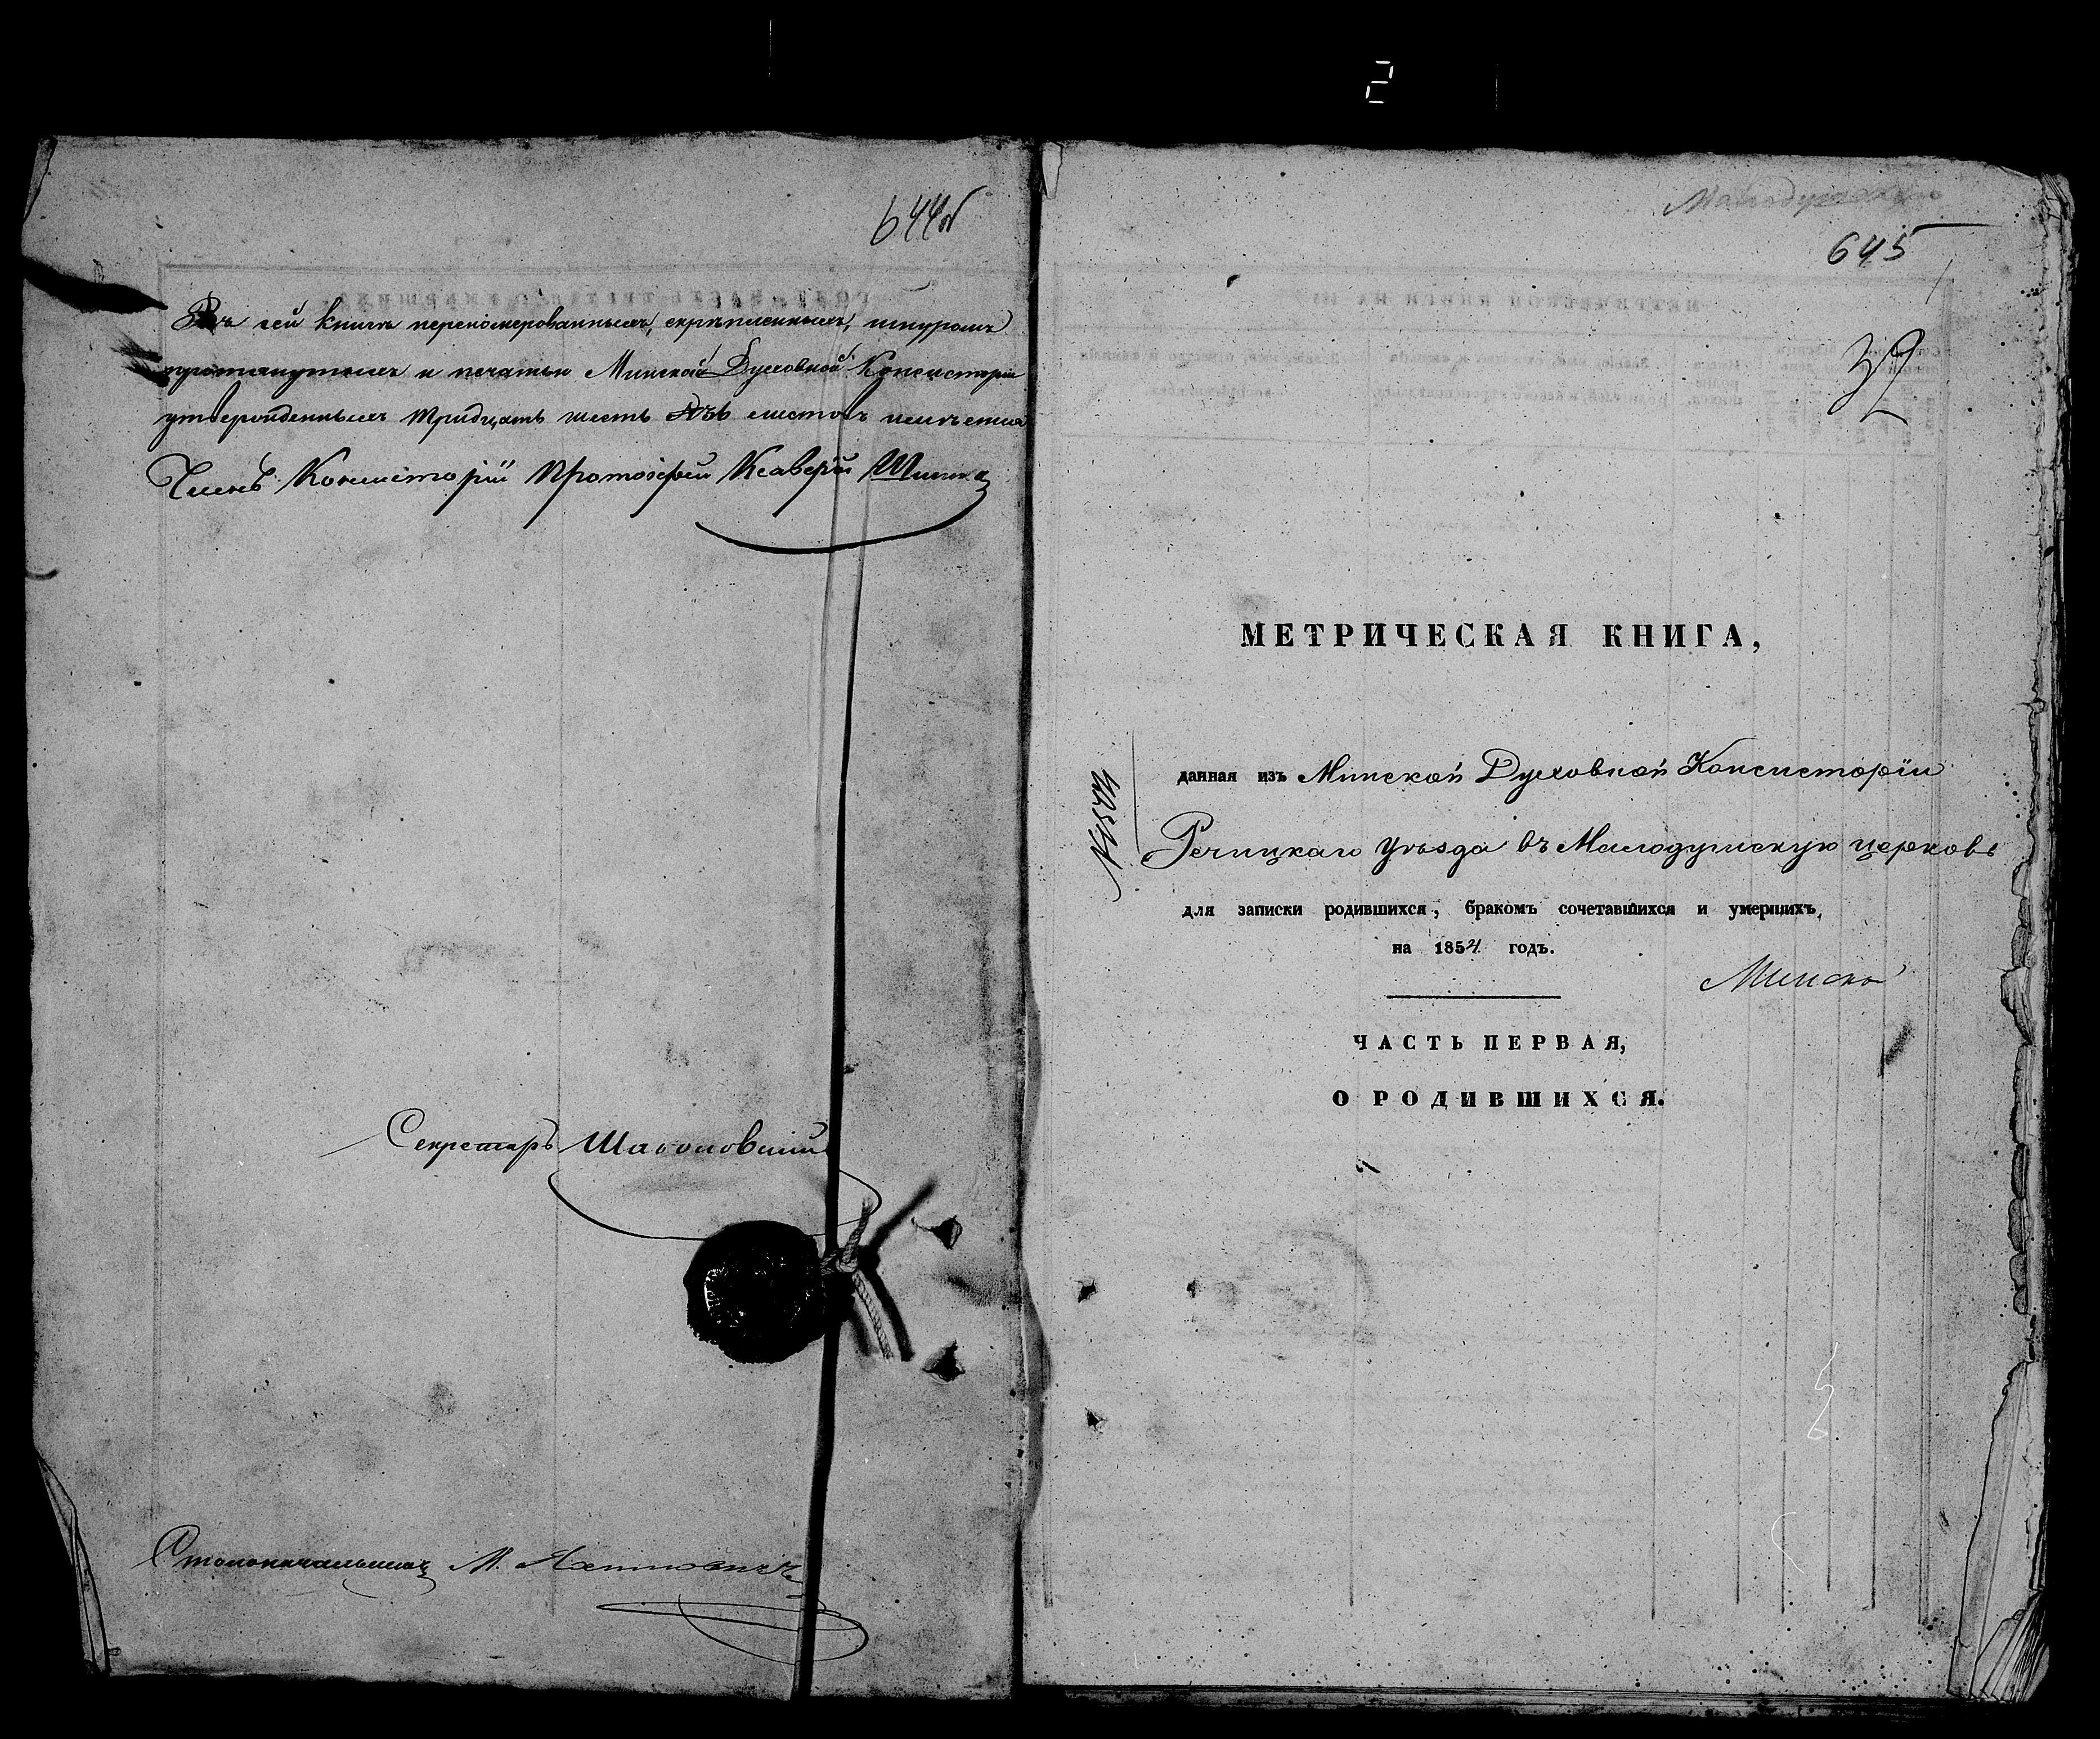 644об
Въ сей книгѣ перенумерованныхъ, скрѣпленныхъ, шнуромъ
протянутыхъ и печатью Минской Духовной Консисторіи
утвержденныхъ тридцать шесть листовъ имѣется
Членъ Консисторіи Протоіерей Ксаверій
Секретарь
Столоначальникъ М.
2
645
32
МЕТРИЧЕСКАЯ КНИГА,
данная изъ Минской Духовной Консисторіи
Речицкаго уѣзда въ Малодушскую церковь
для записки родившихся, бракомъ сочетавшихся и умершихъ,
на 1854 годъ.
ЧАСТЬ ПЕРВАЯ,
О РОДИВШИХСЯ.